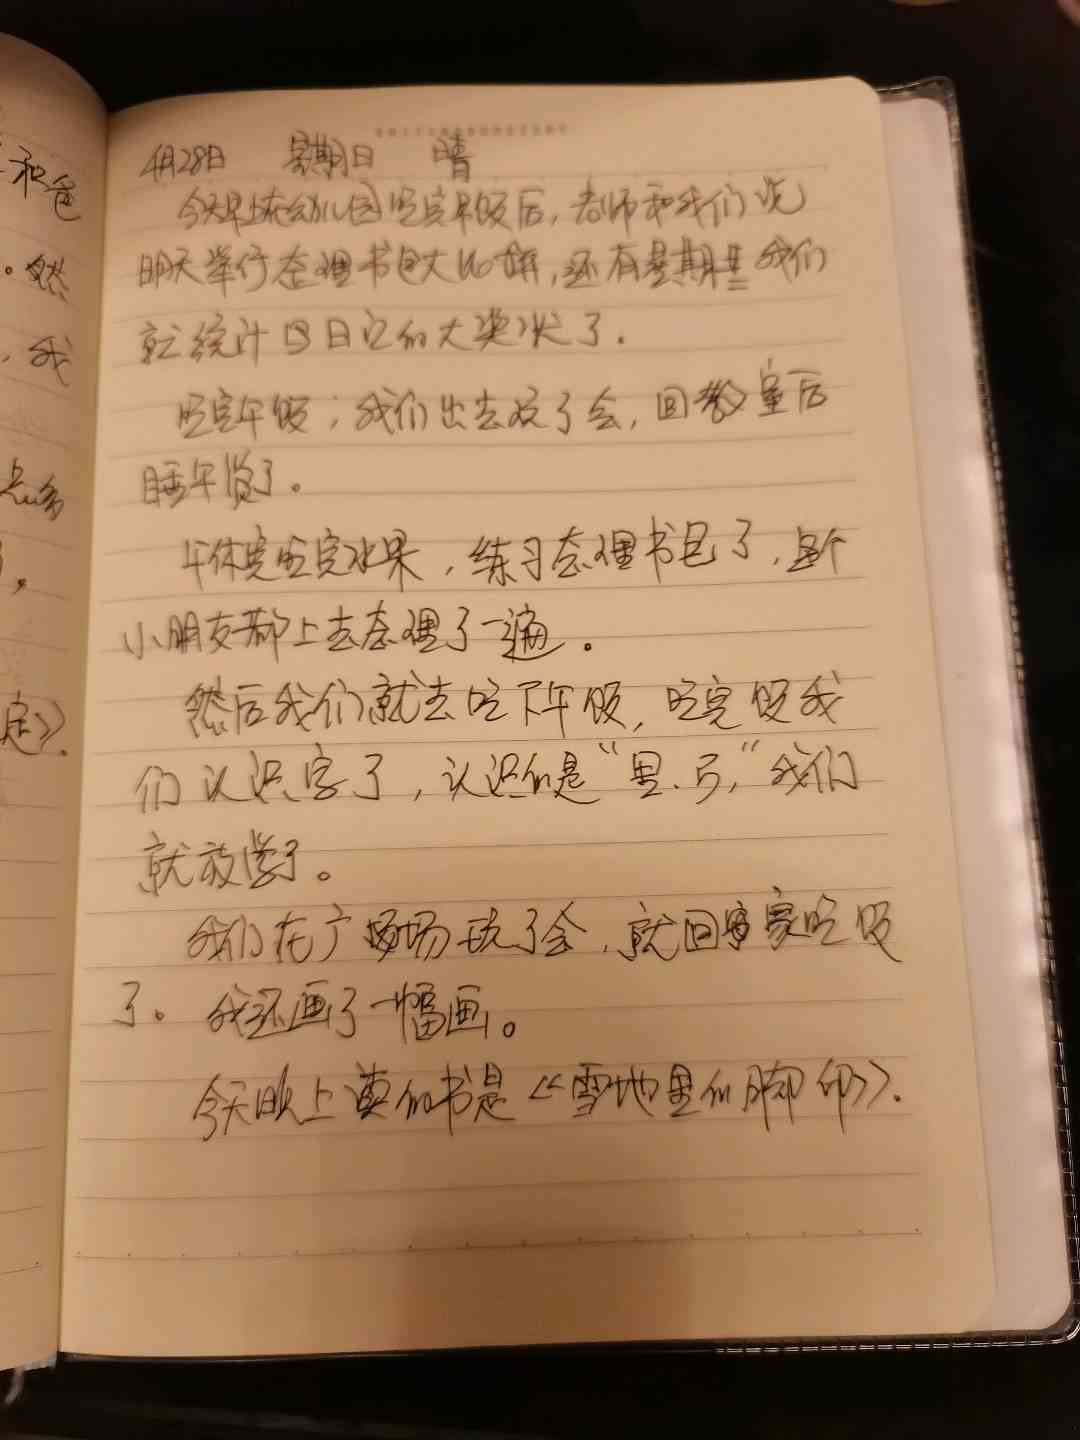 4月28日 星期日 晴
今天早上在幼儿园吃完早饭后，老师和我们说
明天举行整理书包大比拼，还有星期三我们
就统计四月份的大奖状了.
吃完午饭，我们出去玩了会，回教室后
睡午觉了。
午休完吃完水果，练习整理书包了，每个
小朋友都上去整理了一遍。
然后我们就去吃下午饭，吃完饭我
们认识字了，认识的是“里、弓，”我们
就放学了。
我们在广场玩了会，就回家吃饭
了。我还画了一幅画。
今天晚上读的书是《雪地里的脚印》.
和爸
。然
，我
点多
定》.